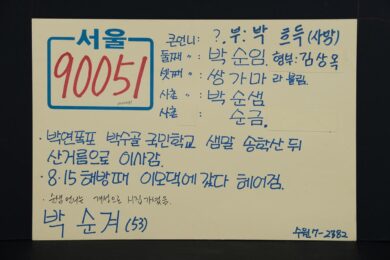 서울
90051
큰언니: ?. 부: 박 흐득 (사망)
둘째 〃: 박 순임. 형부: 김상옥
셋째 〃: 쌍가마 라 불림.
사촌 : 박 순샘
사촌 순금.
· 박연폭포 박수골 국민학교 샘말 송학산 뒤
산거름으로 이사감.
· 8·15 해방때 이모댁에 갔다 헤어짐.
· 언니는 개성으로 시집가셨음.
박 순겨 (53)
수원 7-2382